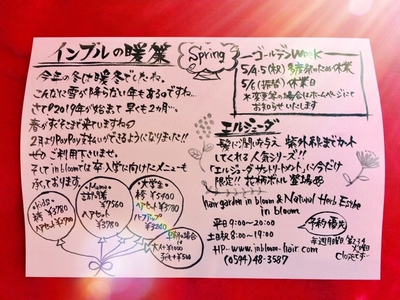 インブルの暖簾
Spring
今年の冬は暖冬でしたね。
こんなに雪が降らない年もあるのですね…
さて2019年が始まって早くも2ヶ月…
春がすぐそこまで来ていますね
2月よりPayPay支払いができるようになりました!!
ぜひご利用下さいませ。
そしてin bloomでは卒入学に向けたメニューも
承っております。
Kids
袴 ¥3780
ヘアセット ¥3780
Mama
訪問着
¥7560
ヘアセット
¥3780
大学生
袴 ¥5400
ヘアセット ¥3780
ハーフアップ
¥3200
早朝の場合
大人+¥1000
子供+¥500
ゴールデンWeek
5/4.5(祝) 休業
5/6(振替) 休日
※変更等の場合はホームページにて
お知らせいたします
エルジューダ
髪に潤いを与え 紫外線までカット
してくれる人気シリーズ!!
「エルジューダ サントリートメント」に今だけ
限定!! 花柄ボトル登場
hair garden in bloom & Natural Herb Esthe
in bloom
平日 9:00~20:00
土日祝 8:00~19:00
HP→www.inbloom-hair.com
☎(0594)48-3587
予約優先
毎週月曜日、第2・3火曜日
closeです